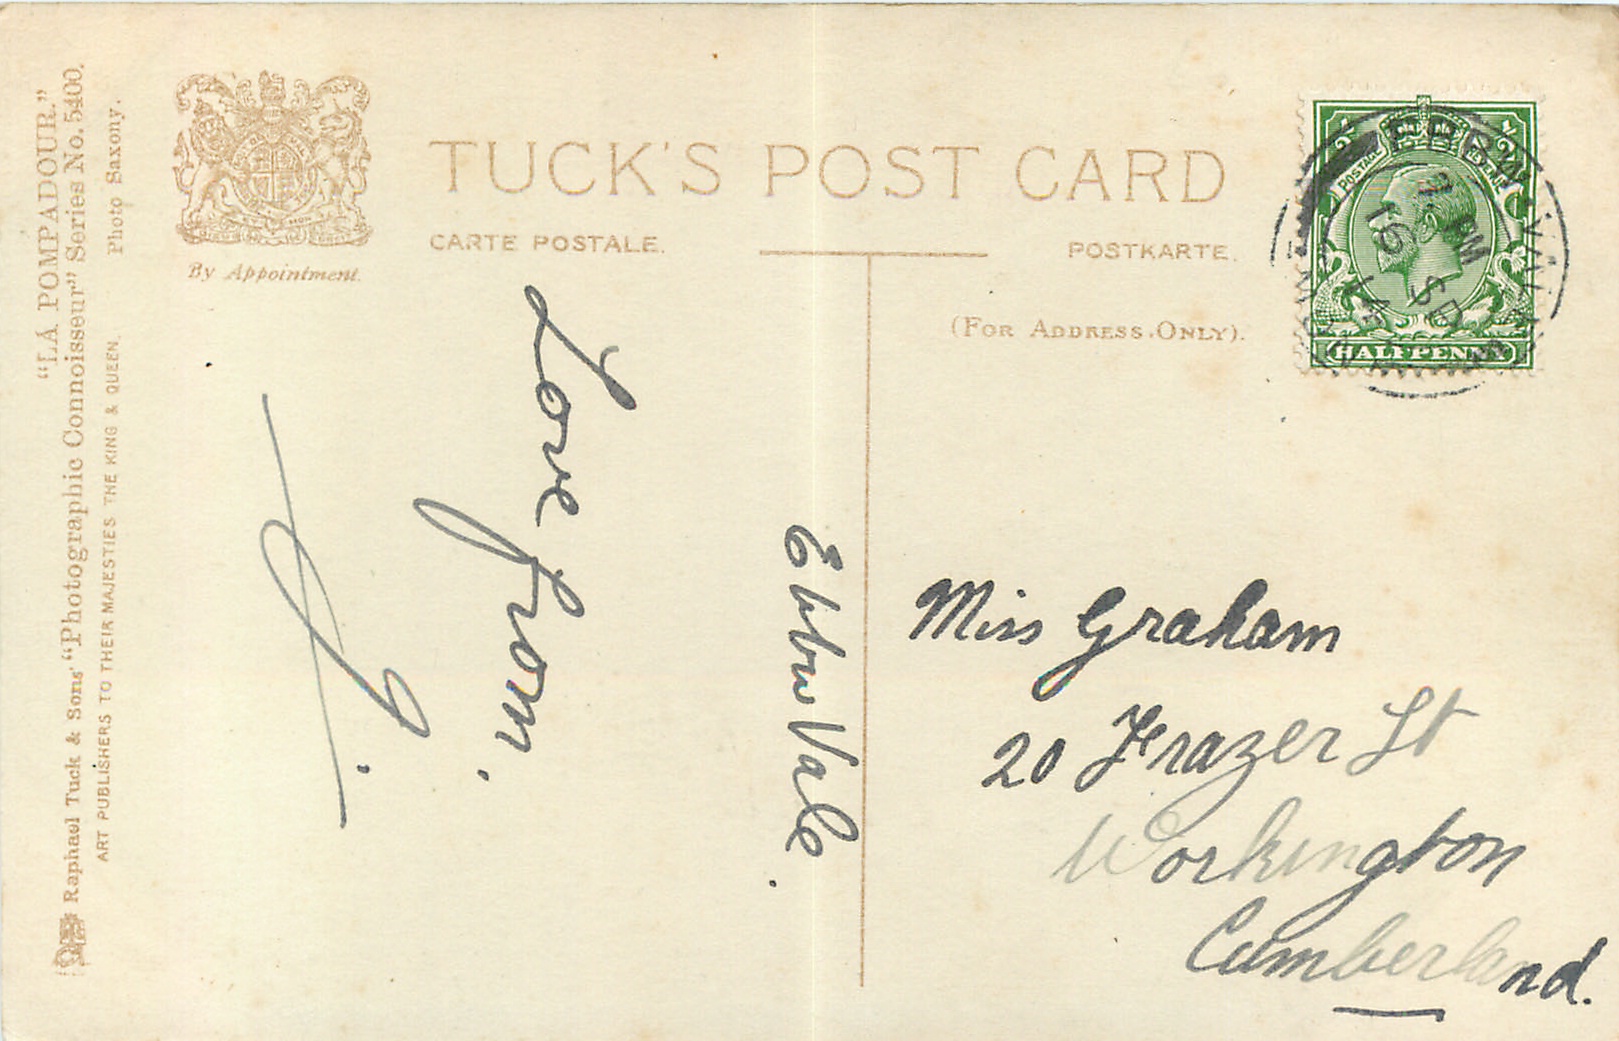 TUCK'S POST CARD
CARTE POSTALE.
POSTKARTE.
(FOR ADDRESS ONLY).
By Appointment.
"LA POMPADOUR."
Raphael Tuck & Sons' "Photographic Connoisseur" Series No. 5400.
ART PUBLISHERS TO THEIR MAJESTIES THE KING & QUEEN.
Photo Saxony.
Ebbw Vale
Love from.
Miss Graham
20 Frazer St
Workington
Cumberland.
POSTAGE
REVENUE
HALFPENNY
EBBW VALE
PM
16 SP
14